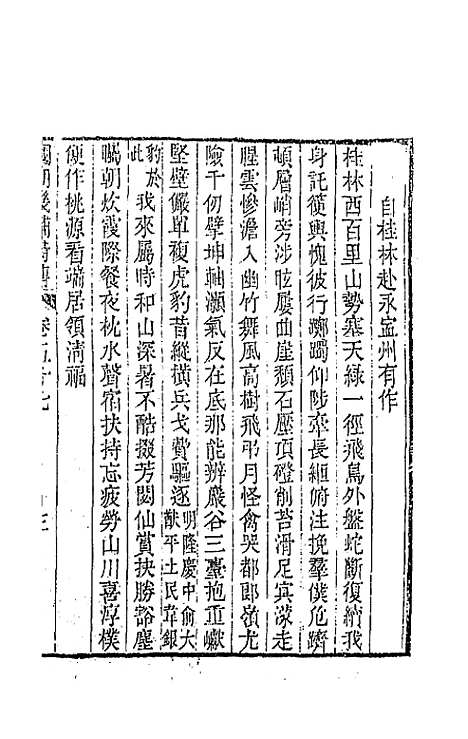 自桂林赴永寧州有作
桂林西百里山勢塞天綠一徑飛鳥外盤蛇斷復續我
身託筍輿愧彼行躑躅仰陟牽長緪俯注挽羣僕危躋
頓層峭旁涉眩屢曲崖頹石壓頂磴削苔滑足冥濛走
腥雲慘澹入幽竹舞風高樹飛弔月怪禽哭都郎嶺尤
險千仞擘坤軸灝氣反在底那能辨巖谷三臺抱重巘
堅壁儼單複虎豹昔縱橫兵戈費驅逐明隆慶中俞大猷平土民韋銀
豹於此我來屬時和山深暑不酷掇芳閟仙賞抉勝豁塵
矚朝炊霞際餐夜枕水聲宿扶持忘疲勞山川喜淳樸
便作桃源看端居領清福
國朝 詩 卷五十七